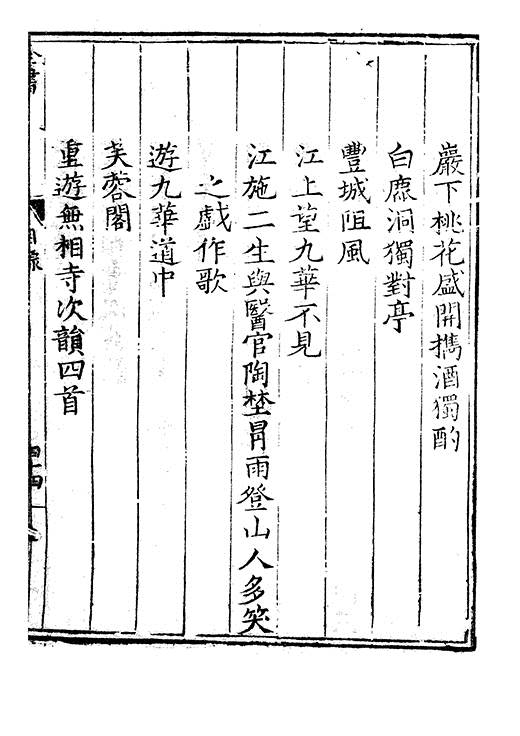 巖下桃花盛開攜酒獨酌
白鹿洞獨對亭
豐城阻風
江上望九華不見
江施二生與醫官陶埜冐雨登山人多笑
之戲作歌
遊九華道中
芙蓉閣
重遊無相寺次韻四首
目錄
四十四